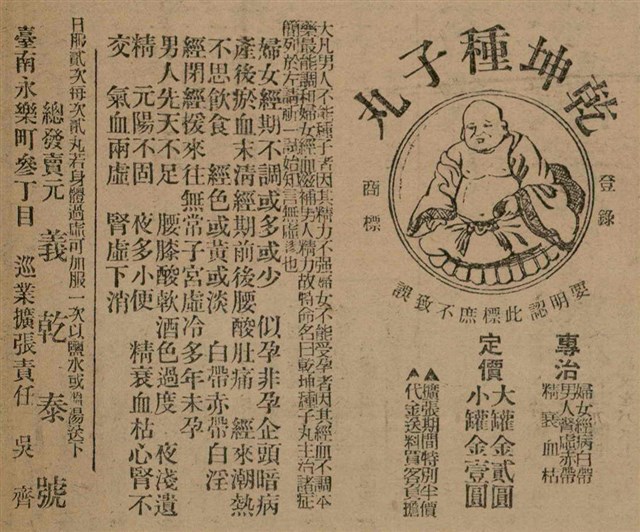 乾坤種子丸
登錄
商標
要明認此標庶不致誤
專治
婦女經病白帶
男人腎虛赤帶
精衰血枯
定價
大罐金貳圓
小罐金壹圓
▲擴張期間特別半價
▲代金送料買客負擔
大凡男人不能種子者因其精力不强婦女不能受孕者因其經血不調本
藥最能調和婦女經血滋補男人精力故特命名曰乾坤種子丸主治諸症
簡列於左請祈一試始知言無虛謬也
婦女經期不調或多或少 似孕非孕企頭暗病
產後瘀血未清經期前後腰酸肚痛 經來潮熱
不思飲食 經色或黃或淡 白帶赤帶白淫
經閉經援來往無常子宮虛冷多年未孕
男人先天不足 腰膝酸軟酒色過度 夜淺遺
精 元陽不固 夜多小便 精衰血枯心腎不
交 氣血兩虛 腎虛下消
日服貳次每次貳丸若身體過虛可加服一次以鹽水或湯送下
總發賣元 義乾泰號
臺南永樂町參丁目 巡業擴張責任 吳齊